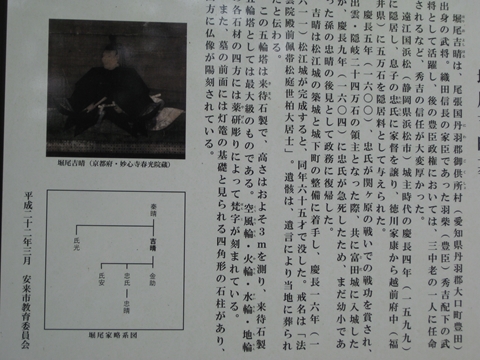 堀尾吉晴は、尾張国丹羽郡御供所村（愛知県丹羽郡大口町豊田）
出身の武将。織田信長の家臣であった羽柴（豊臣）秀吉配下の武
将として活躍し、後の豊臣政権においては、三中老の一人に任命
されるなど、秀吉の信任が大変厚かった。
遠江国浜松（静岡県浜松市）城主時代の慶長四年（一五九九）
に隠居し、息子の忠氏に家督を譲り、徳川家康から越前府中（福
井県）に五万石を隠居料として与えられた。
慶長五年（一六〇〇）、忠氏が関ヶ原の戦いでの戦功を賞され、
出雲・隠岐二十四万石の領主となった際、共に富田城に入城した
が、慶長九年（一六〇四）に忠氏が急死したため、まだ幼小であ
った孫の忠晴の後見として政務に復帰した。
吉晴は松江城の築城と城下町の整備に着手し、慶長一六年（一
六一一）松江城が完成すると、同年六十五才で没した。戒名は「法
雲院殿前佩帯松庭世柏大居士」。遺骸は、遺言により当地に葬られ
たと伝わる。
この五輪塔は来待石製で、高さはおよそ３ｍを測り、来待石製
五輪塔としては最大級のものである。空風輪・火輪・水輪・地輪
各石材の四方には薬研彫りによって梵字が刻まれている。
また、墓の前面には灯篭の基礎と見られる四角形の石柱があり、
四方に仏像が陽刻されている。
平成二十二年三月　安来市教育委員会
堀尾吉晴（京都府・妙心寺春光院蔵）
泰晴
吉晴
氏光
金助
忠氏
忠晴
氏安
堀尾家略系図